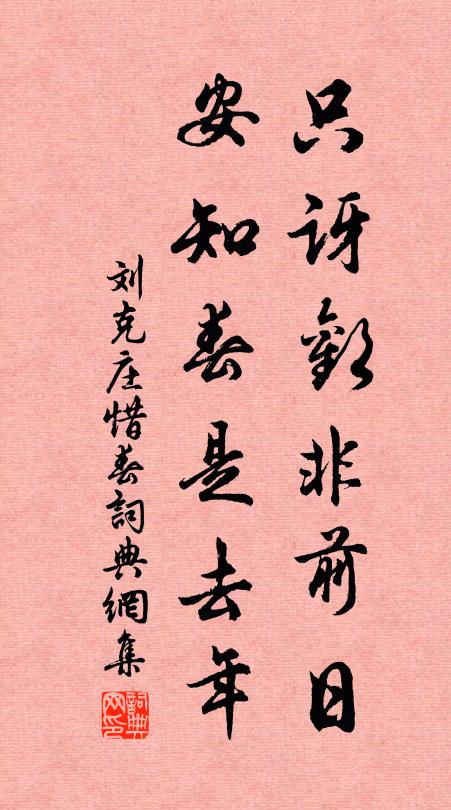 只訝歡非前日
安知春是去年
刘克庄惜春詞典網集
詞典网印